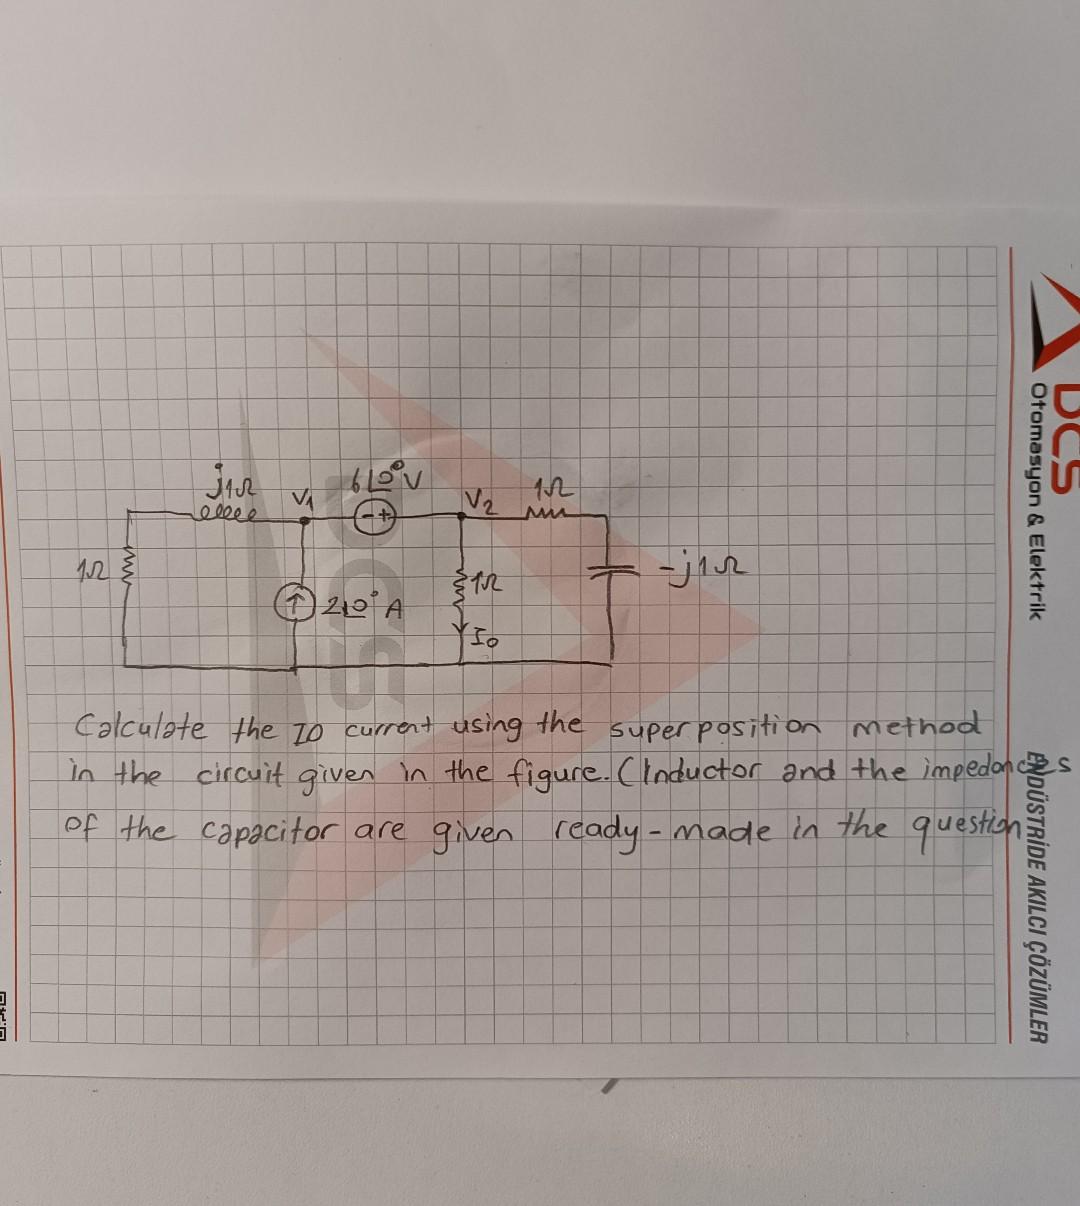 j1Ω
V1
6∠0° V
V2
1Ω
- +
1Ω
2∠0° A
1Ω
-j1Ω
Io
Calculate the IO current using the superposition method
in the circuit given in the figure. (Inductor and the impedances
of the capacitor are given ready-made in the question
DCS
Otomasyon & Elektrik
ENDÜSTRİDE AKILCI ÇÖZÜMLER
DCS